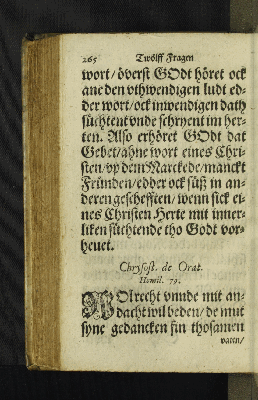 265 Twölff Fragen
wort / överst GOdt höret ock
ane den vthwendigen ludt ed-
der wort / ock inwendigen dath
süchtent vnde schryent im her-
ten. Also erhöret GOdt dat
Gebet / ahne wort eines Chri-
sten / vp dem Marckede / manckt
Fründen / edder ock süß in an-
deren geschefften / wenn sick ei-
nes Christen Herte mit inner-
liken süchtende tho Godt vor-
heuet.
Chrysost. de Orat.
Homil. 79.
WOl recht vnnde mit an-
dacht wil beden / de mut
syne gedancken fin thosamen
vaten /